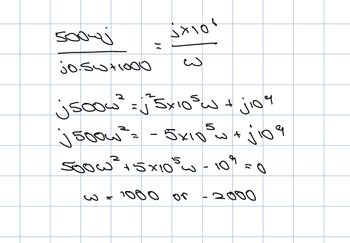 500ωj / (j0.5ω+1000) = j×10⁶ / ω
j500ω² = j²5×10⁵ω + j10⁹
j500ω² = - 5×10⁵ω + j10⁹
500ω² + 5×10⁵ω - 10⁹ = 0
ω = 1000 or -2000